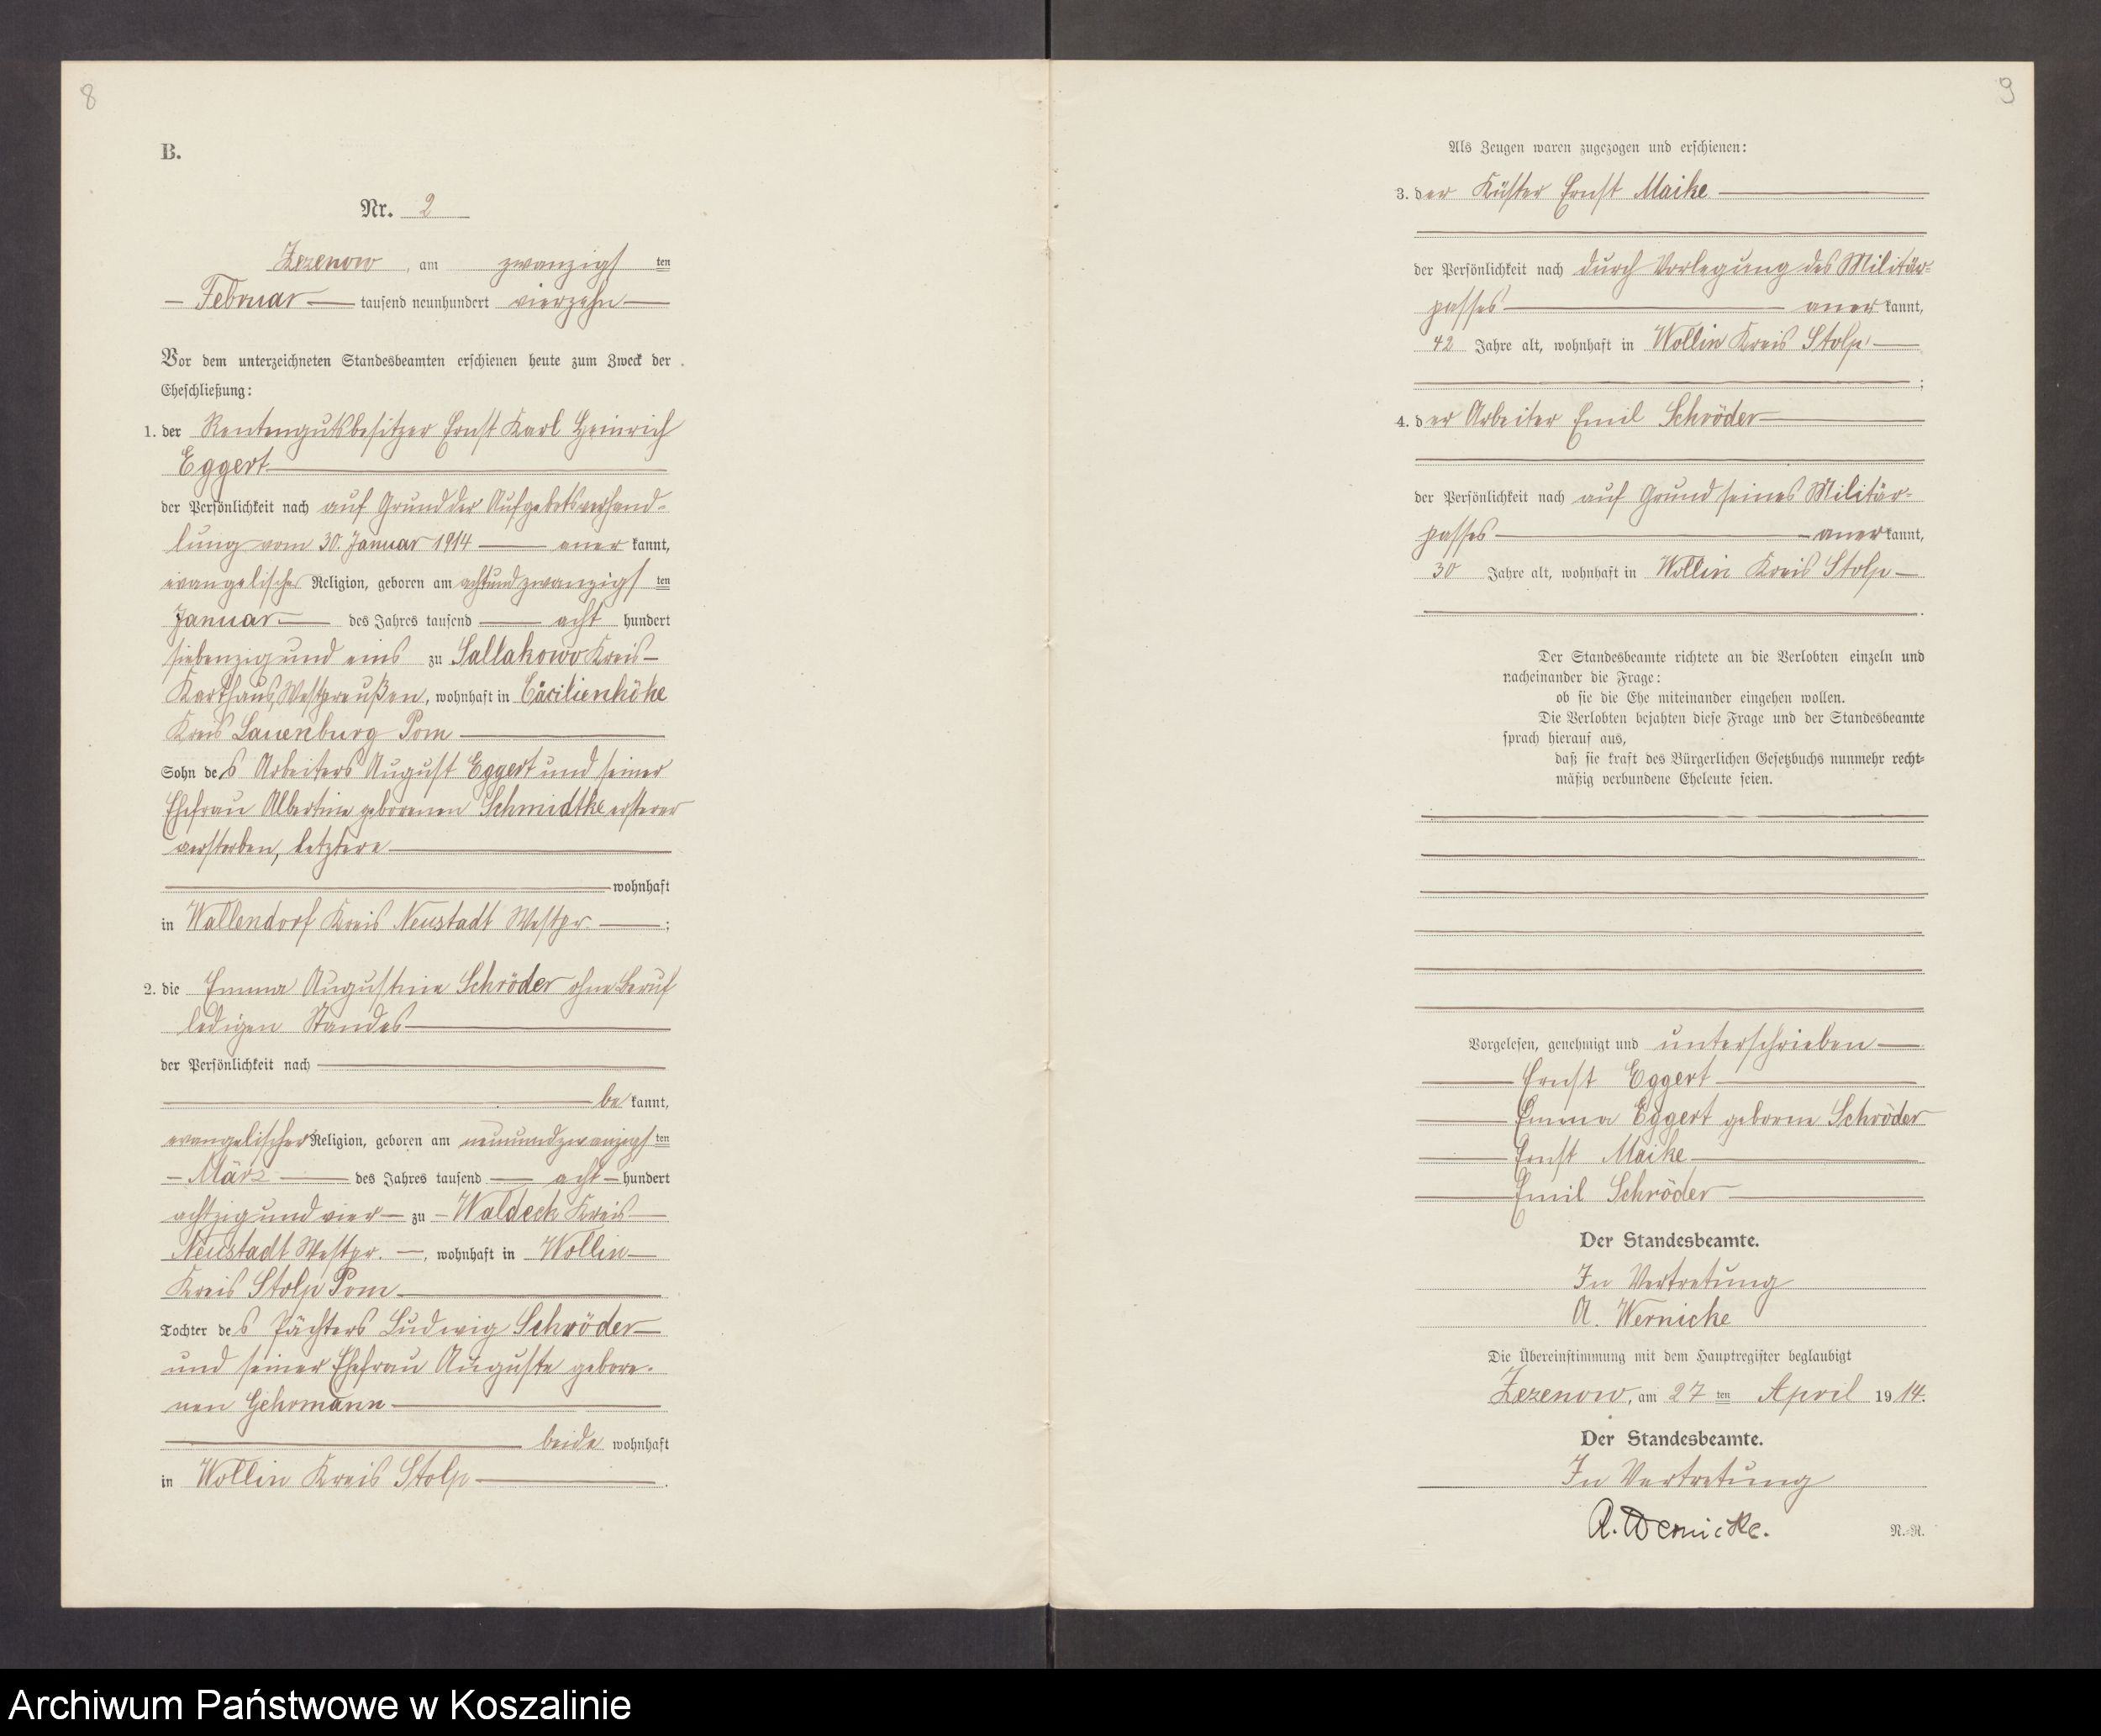 8
B.
Nr. 2
Zezenow, am zwanzigsten
Februar tausend neunhundert vierzehn
Vor dem unterzeichneten Standesbeamten erschienen heute zum Zweck der
Eheschließung:
1. der Rentengutsbesitzer Ernst Karl Heinrich
Eggert
der Persönlichkeit nach auf Grund der Aufgebotsverhand-
lung vom 30. Januar 1914 anerkannt,
evangelischer Religion, geboren am achtundzwanzigsten
Januar des Jahres tausend acht hundert
siebenzig und eins zu Sallakowo Kreis
Karthaus Westpreußen, wohnhaft in Cäcilienhöhe
Kreis Lauenburg Pom
Sohn des Arbeiters August Eggert und seiner
Ehefrau Albertine geborenen Schmidtke ersterer
verstorben, letztere
wohnhaft
in Wallendorf Kreis Neustadt Westpr. ;
2. die Emma Augustine Schröder ohne Beruf
ledigen Standes
der Persönlichkeit nach
bekannt,
evangelischer Religion, geboren am neunundzwanzigsten
März des Jahres tausend acht hundert
achtzig und vier zu Waldeck Kreis
Neustadt Westpr. , wohnhaft in Wollin
Kreis Stolp Pom
Tochter des Pächters Ludwig Schröder
und seiner Ehefrau Auguste gebore-
nen Gehrmann
beide wohnhaft
in Wollin Kreis Stolp .
9
Als Zeugen waren zugezogen und erschienen:
3. der Küster Ernst Maike
der Persönlichkeit nach durch Vorlegung des Militär-
passes anerkannt,
42 Jahre alt, wohnhaft in Wollin Kreis Stolp
;
4. der Arbeiter Emil Schröder
der Persönlichkeit nach auf Grund seines Militär-
passes anerkannt,
30 Jahre alt, wohnhaft in Wollin Kreis Stolp
.
Der Standesbeamte richtete an die Verlobten einzeln und
nacheinander die Frage:
ob sie die Ehe miteinander eingehen wollen.
Die Verlobten bejahten diese Frage und der Standesbeamte
sprach hierauf aus,
daß sie kraft des Bürgerlichen Gesetzbuchs nunmehr recht-
mäßig verbundene Eheleute seien.
Vorgelesen, genehmigt und unterschrieben
Ernst Eggert
Emma Eggert geborne Schröder
Ernst Maike
Emil Schröder
Der Standesbeamte.
In Vertretung
A. Wernicke
Die Übereinstimmung mit dem Hauptregister beglaubigt
Zezenow, am 27ten April 1914.
Der Standesbeamte.
In Vertretung
A. Wernicke.
N.-R.
Archiwum Państwowe w Koszalinie